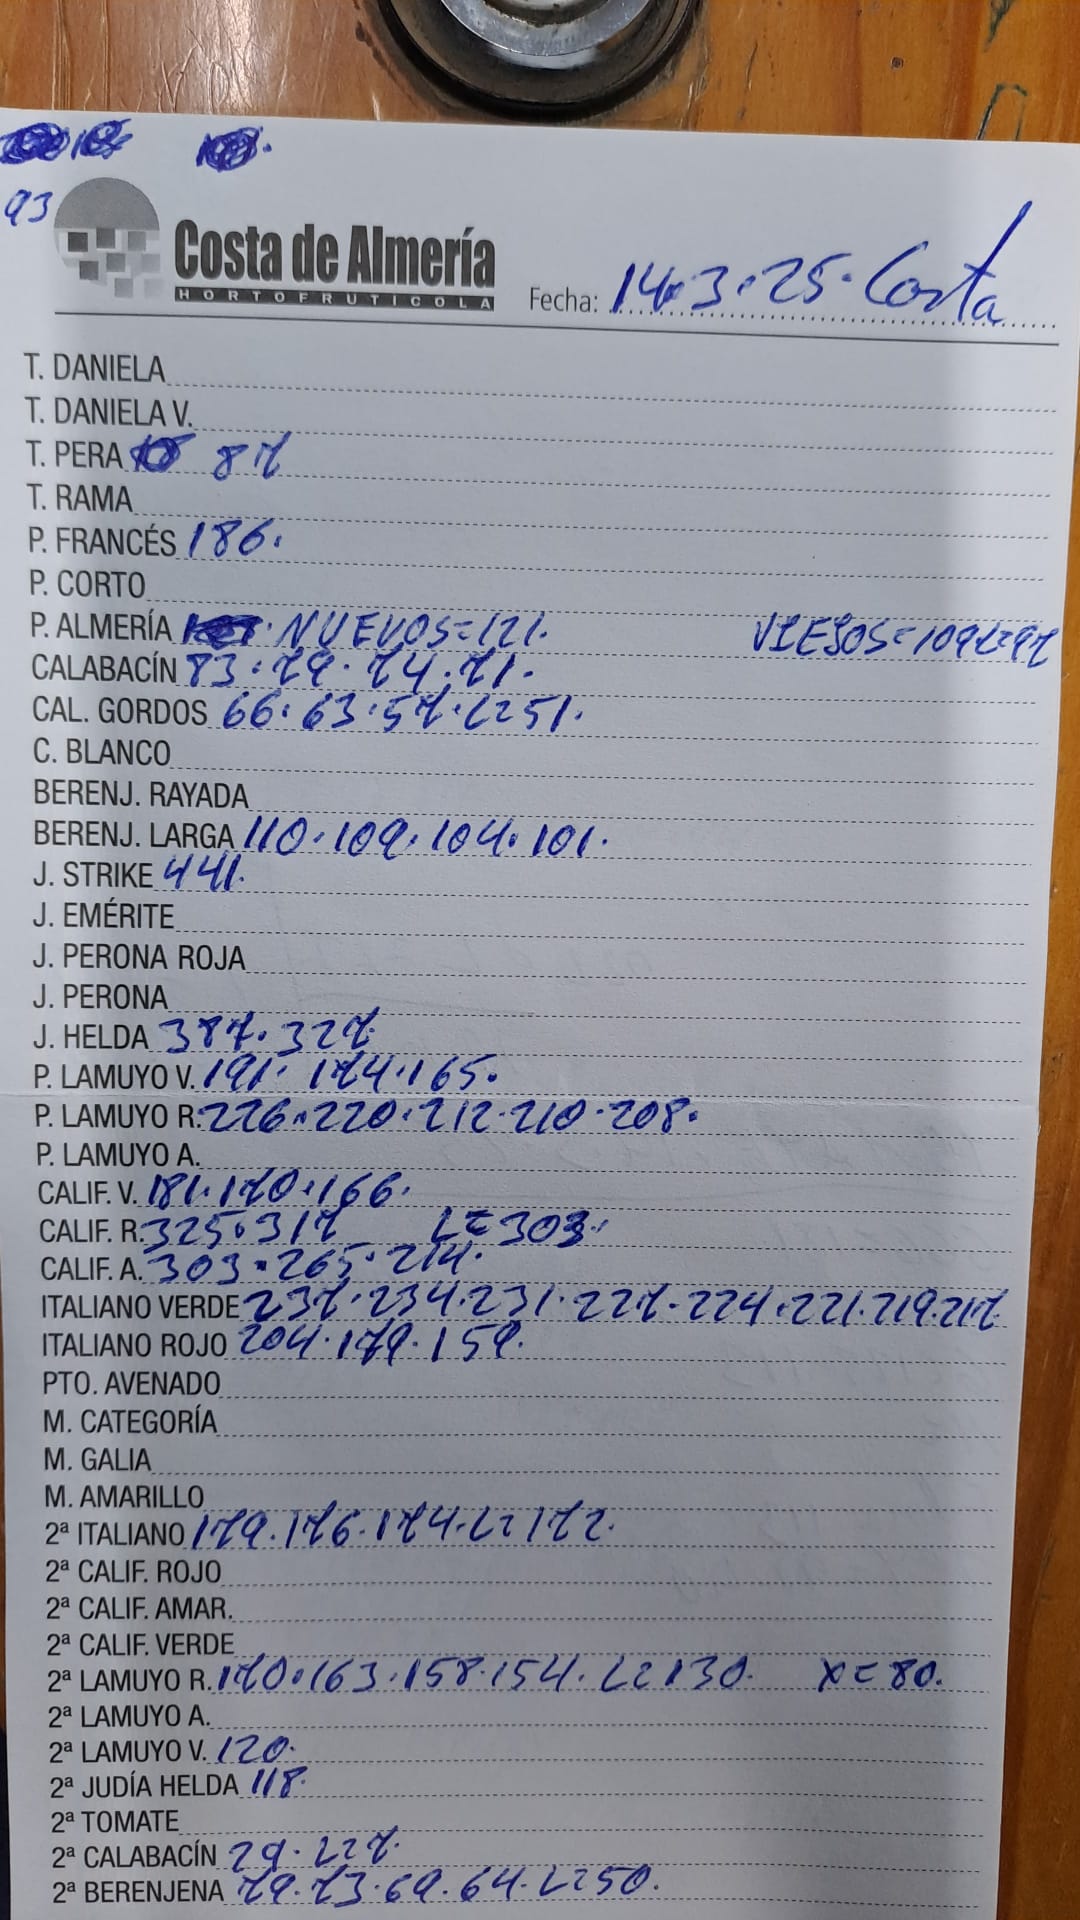 93
Costa de Almería
HORTOFRUTICOLA
Fecha: 14.3.25. Costa
T. DANIELA
T. DANIELA V.
T. PERA 87
T. RAMA
P. FRANCÉS 186.
P. CORTO
P. ALMERÍA NUEVOS=121. VIEJOS=109L=97
CALABACÍN 83.79.74.71.
CAL. GORDOS 66.63.57.L=51.
C. BLANCO
BERENJ. RAYADA
BERENJ. LARGA 110.109.104.101.
J. STRIKE 441.
J. EMÉRITE
J. PERONA ROJA
J. PERONA
J. HELDA 387.327
P. LAMUYO V. 191.174.165.
P. LAMUYO R. 226.220.212.210.208.
P. LAMUYO A.
CALIF. V. 181.170.166.
CALIF. R. 325.317 L=303.
CALIF. A. 303.265.214.
ITALIANO VERDE 237.234.231.227.224.221.219.217.
ITALIANO ROJO 204.179.159.
PTO. AVENADO
M. CATEGORÍA
M. GALIA
M. AMARILLO
2ª ITALIANO 179.176.174.L=172.
2ª CALIF. ROJO
2ª CALIF. AMAR.
2ª CALIF. VERDE
2ª LAMUYO R. 170.163.158.154.L=130. X=80.
2ª LAMUYO A.
2ª LAMUYO V. 120.
2ª JUDÍA HELDA 118.
2ª TOMATE
2ª CALABACÍN 29.L27.
2ª BERENJENA 79.73.69.64.L=50.